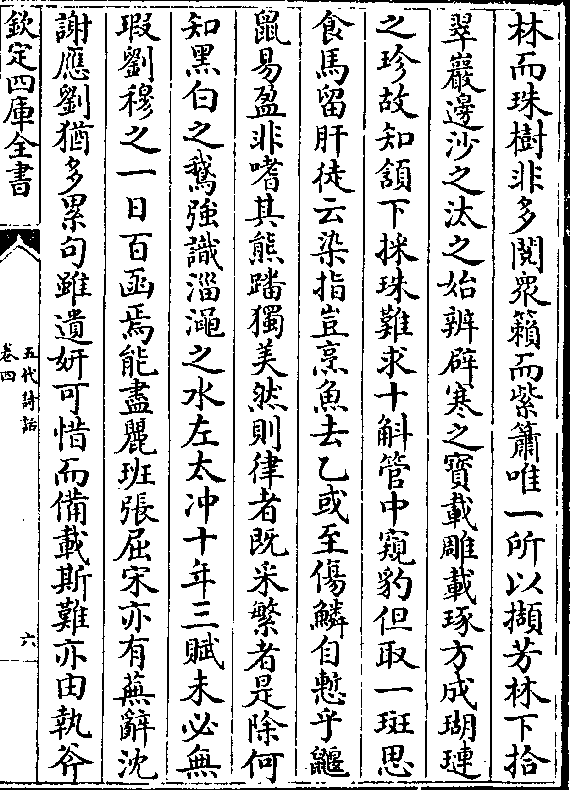 林而珠樹非多閱衆籟而紫簫唯一所以擷芳林下拾
翠巖邊沙之汰之始辨辟寒之寳載雕載琢方成瑚璉
之珍故知頷下採珠難求十斛管中窺豹但取一斑思
食馬留肝徒云染指豈烹魚去乙或至傷鱗自慙乎鼴
鼠易盈非嗜其熊蹯獨美然則律者既采繁者是除何
知黑白之鵞強識淄澠之水左太冲十年三賦未必無
瑕劉穆之一日百函焉能盡麗班張屈宋亦有蕪辭沈
謝應劉猶多累句雖遺妍可惜而備載斯難亦由執斧
欽定四庫全書
五代詩話
卷四
六